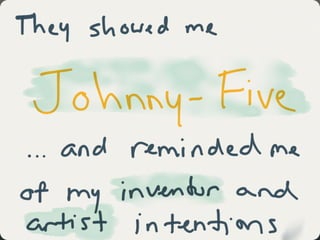 They showed me
Johnny-Five
... and reminded me
of my inventor and
artist intentions